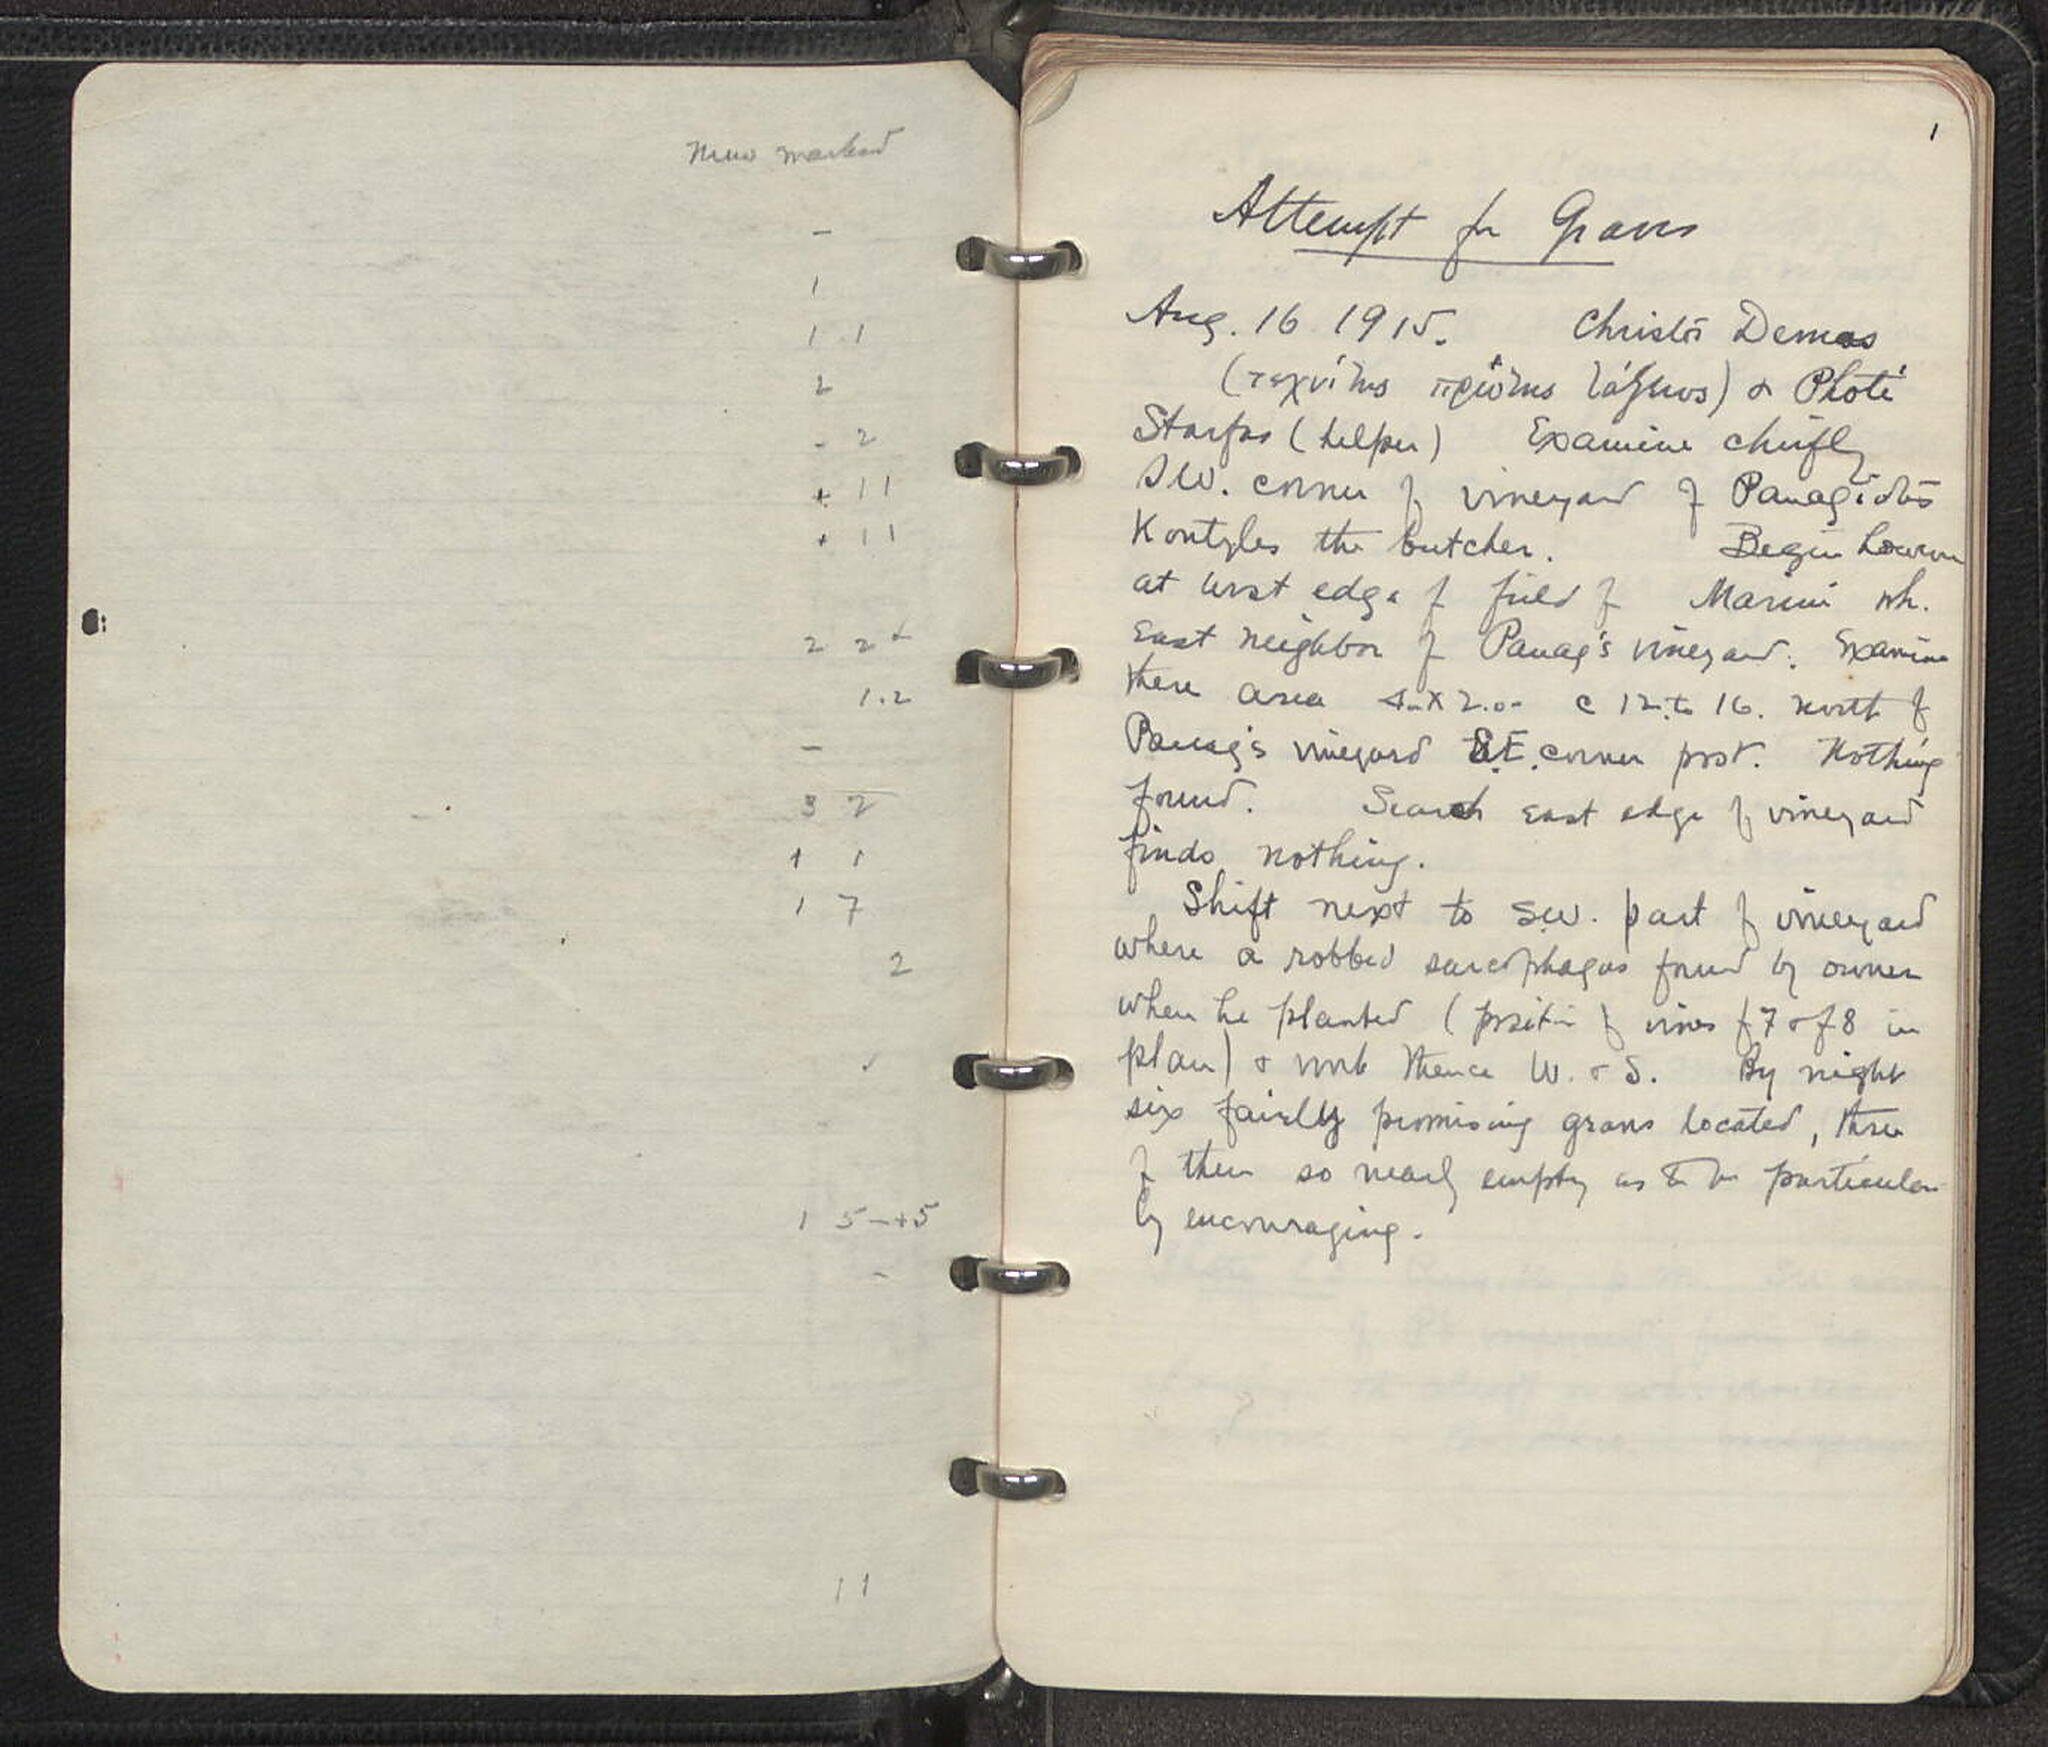 New marked
-
1
1 1
2
- 2
+ 1 1
+ 1 1
2 2
1.2
-
3 2
1 1
1 7
2
✓
1 5-+5
-
1 1
1
Attempt for Graves
Aug. 16 1915. Christos Demas
(τεχνίτης πρώτης τάξεως) & Photi
(helper) Examine chiefly
S.W. corner of vineyard of Panagiotis
the butcher. Begin however
at west edge of field of Marini wh.
East neighbor of Panag's vineyard. Examine
there area 4-x2.0- c 12. to 16. north of
Panag's vineyard S.E. corner post. Nothing
found. Search east edge of vineyard
finds nothing.
Shift next to S.W. part of vineyard
where a robbed sarcophagus found by owner
when he planted (position of vines f7 & f8 in
plan) & work thence W. & S. By night
six fairly promising graves located, three
of them so nearly empty as to be particular
ly encouraging.